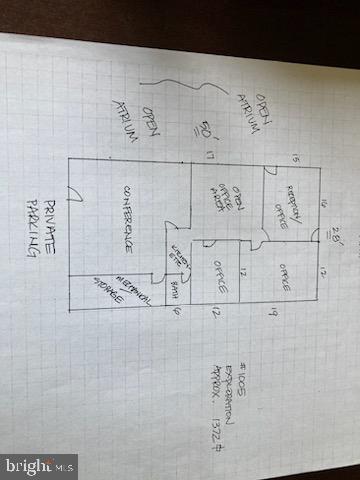 OPEN
ATRIUM
OPEN
ATRIUM
50'
17
15
16
28'
12
RECEPTION/
OFFICE
OPEN
OFFICE
AREA
CONFERENCE
PRIVATE
PARKING
KITCHEN
ETTE
OFFICE
12
OFFICE
BATH
MECHANICAL
STORAGE
6
12
19
#1005
EXPLORATION
APPROX. 1372 ⏍
bright MLS